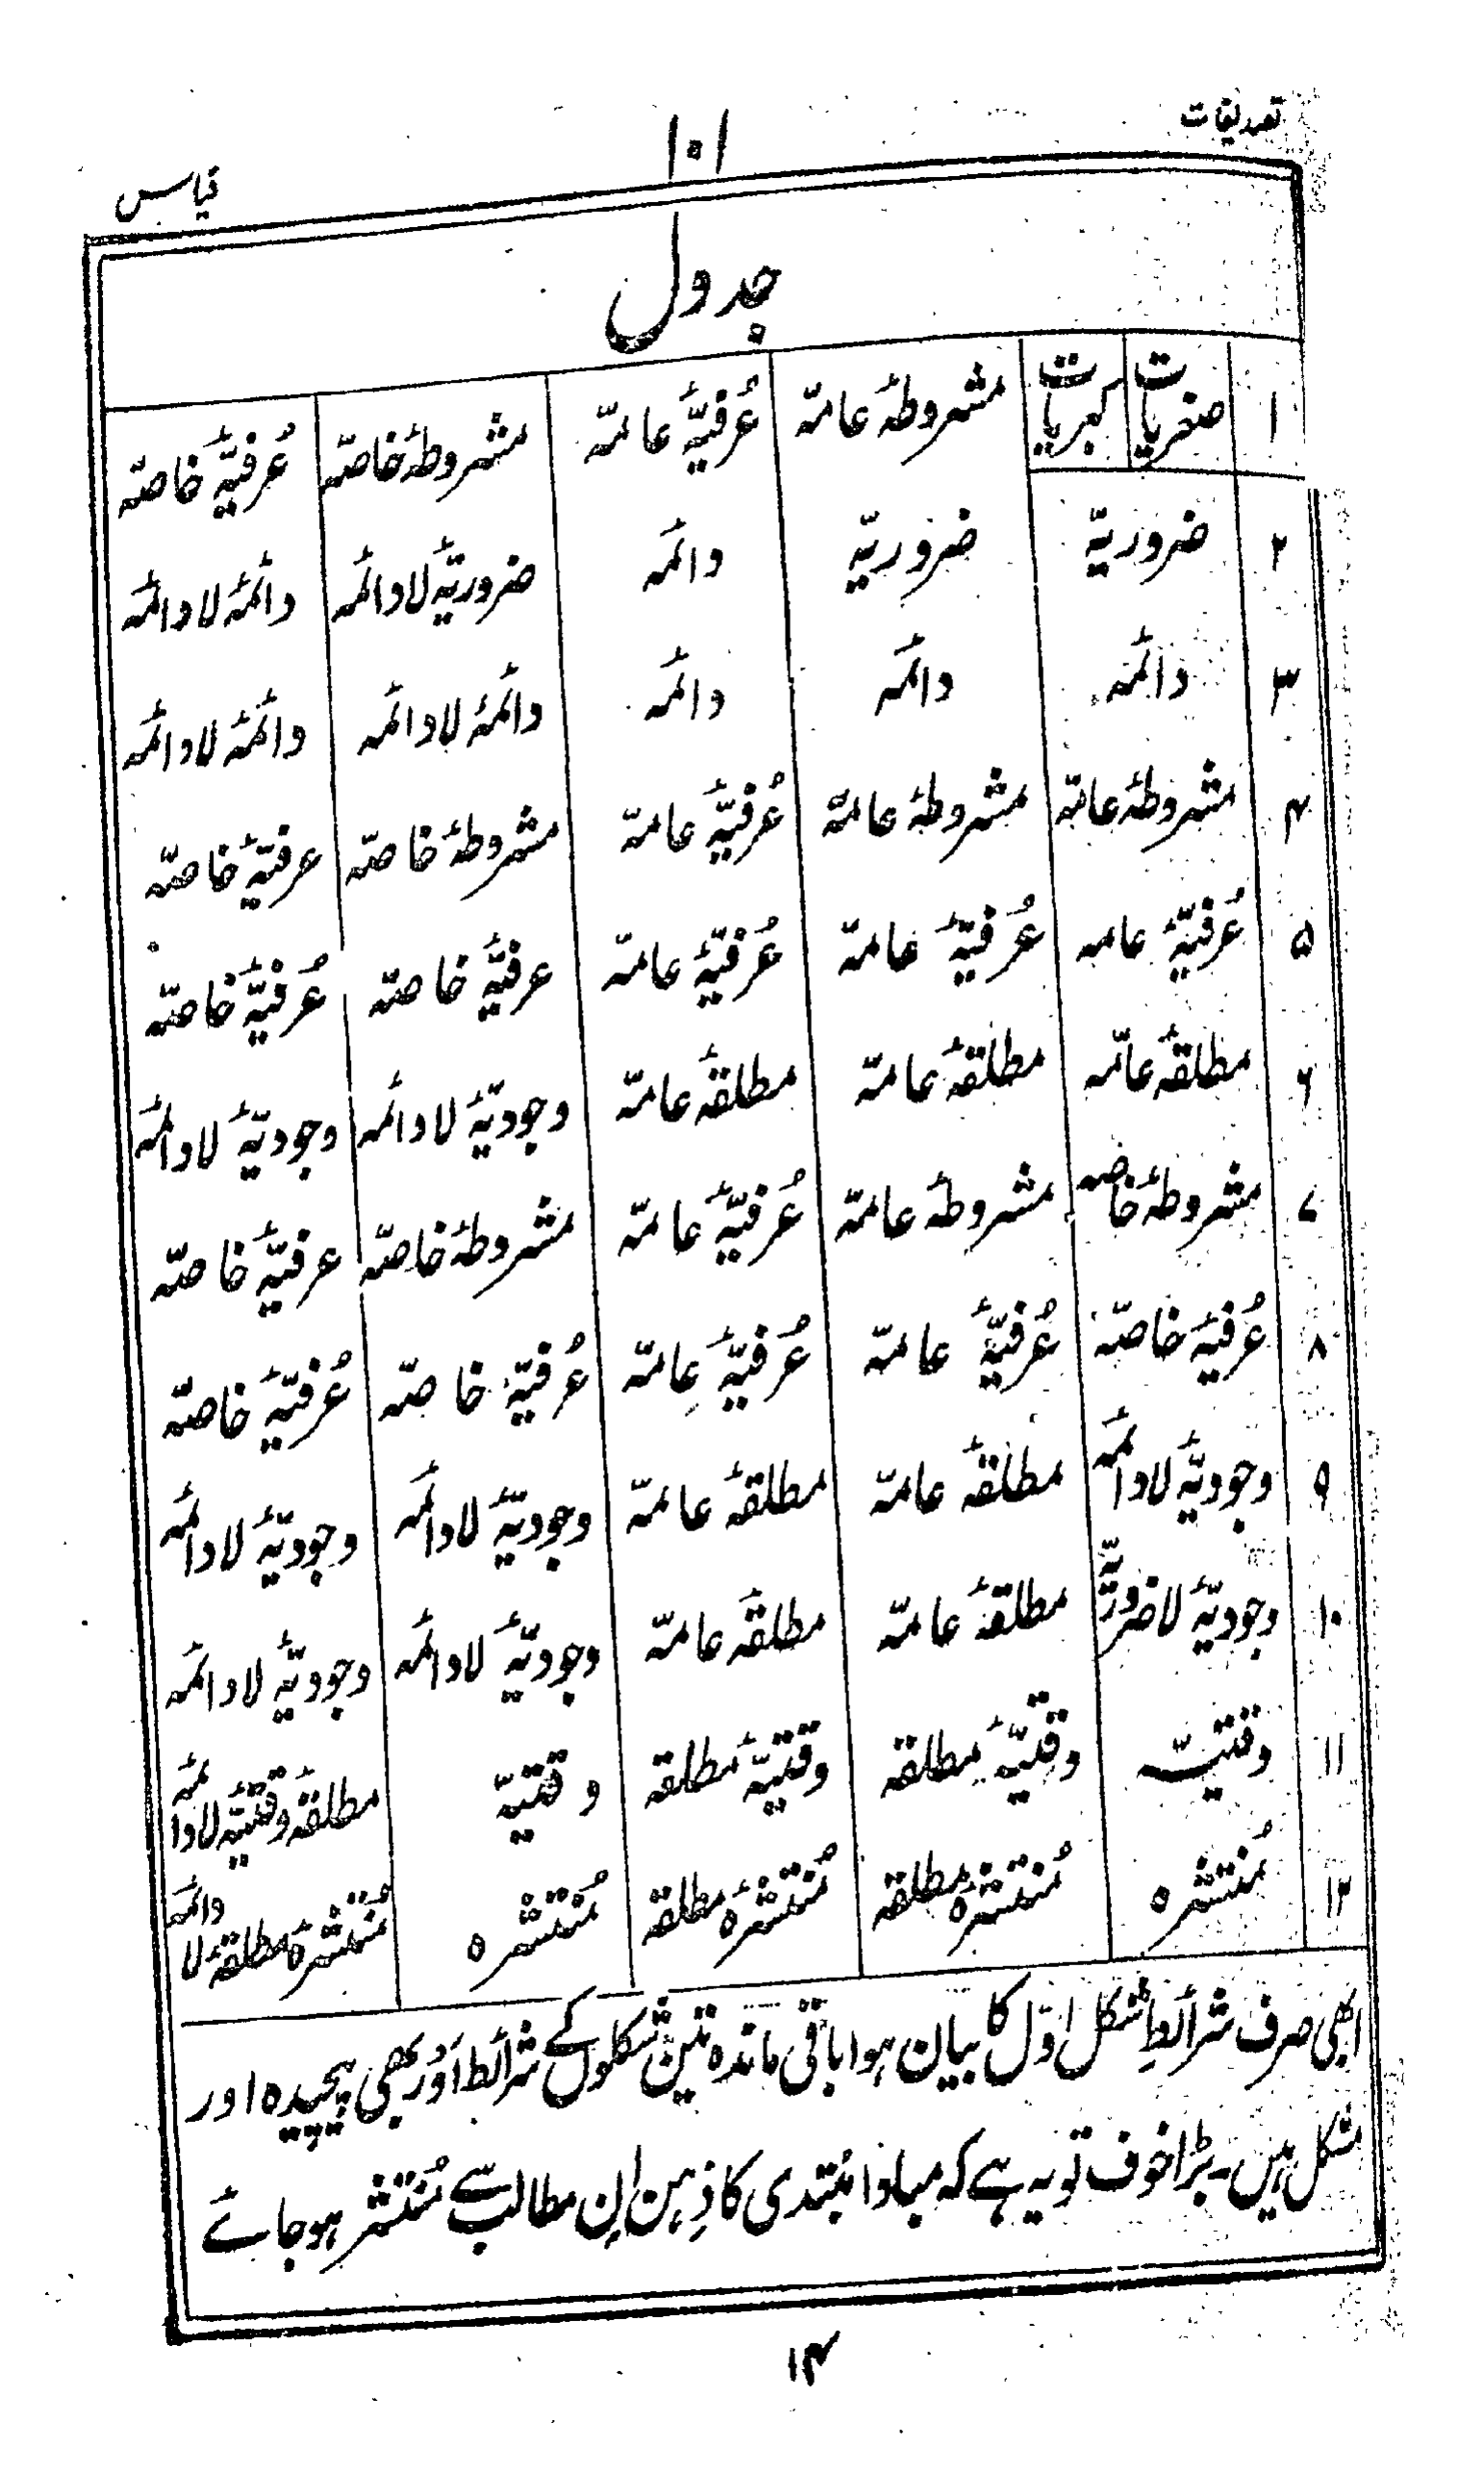 تصدیقات
۱۰۱
قیاس
جدول
۱ صغریات کبریات مشروطۂ عامّہ عُرفیّۂ عامّہ مشروطۂ خاصّہ عُرفیّۂ خاصّہ
۲ ضروریّہ ضروریّہ دائمہ ضروریّۂ لادائمہ دائمۂ لادائمہ
۳ دائمہ دائمہ دائمہ دائمۂ لادائمہ دائمۂ لادائمہ
۴ مشروطۂ عامّہ مشروطۂ عامّہ عُرفیّۂ عامّہ مشروطۂ خاصّہ عرفیّۂ خاصّہ
۵ عُرفیّۂ عامہ عُرفیّۂ عامّہ عُرفیّۂ عامّہ عرفیّۂ خاصّہ عُرفیّۂ خاصّہ
۶ مطلقۂ عامّہ مطلقۂ عامّہ مطلقۂ عامّہ وجودیّۂ لادائمہ وجودیّۂ لادائمہ
۷ مشروطۂ خاصہ مشروطۂ عامّہ عُرفیّۂ عامّہ مشروطۂ خاصّہ عرفیّۂ خاصّہ
۸ عُرفیۂ خاصّہ عُرفیّۂ عامّہ عُرفیّۂ عامّہ عُرفیّۂ خاصّہ عُرفیّۂ خاصّہ
۹ وجودیّۂ لادائمہ مطلقۂ عامّہ مطلقۂ عامّہ وجودیّۂ لادائمہ وجودیّۂ لادائمہ
۱۰ وجودیّۂ لاضروریّہ مطلقۂ عامّہ مطلقۂ عامّہ وجودیّۂ لادائمہ وجودیّۂ لادائمہ
۱۱ وقتیّہ وقتیّۂ مطلقہ وقتیّۂ مطلقہ وقتیّہ مطلقۂ وقتیّۂ لادائمہ
۱۲ مُنتشرہ مُنتشرۂ مطلقہ مُنتشرۂ مطلقہ مُنتشرہ مُنتشرۂ مطلقۂ لادائمہ
ابھی صرف شرائطِ شکل اوّل کا بیان ہوا باقی ماندہ تین شکلوں کے شرائط اَوْر بھی پیچیدہ اور
مشکل ہیں۔ بڑا خوف تو یہ ہے کہ مبادا مُبتدی کا ذِہن اِن مطالب سے مُنتشر ہو جائے
۱۴